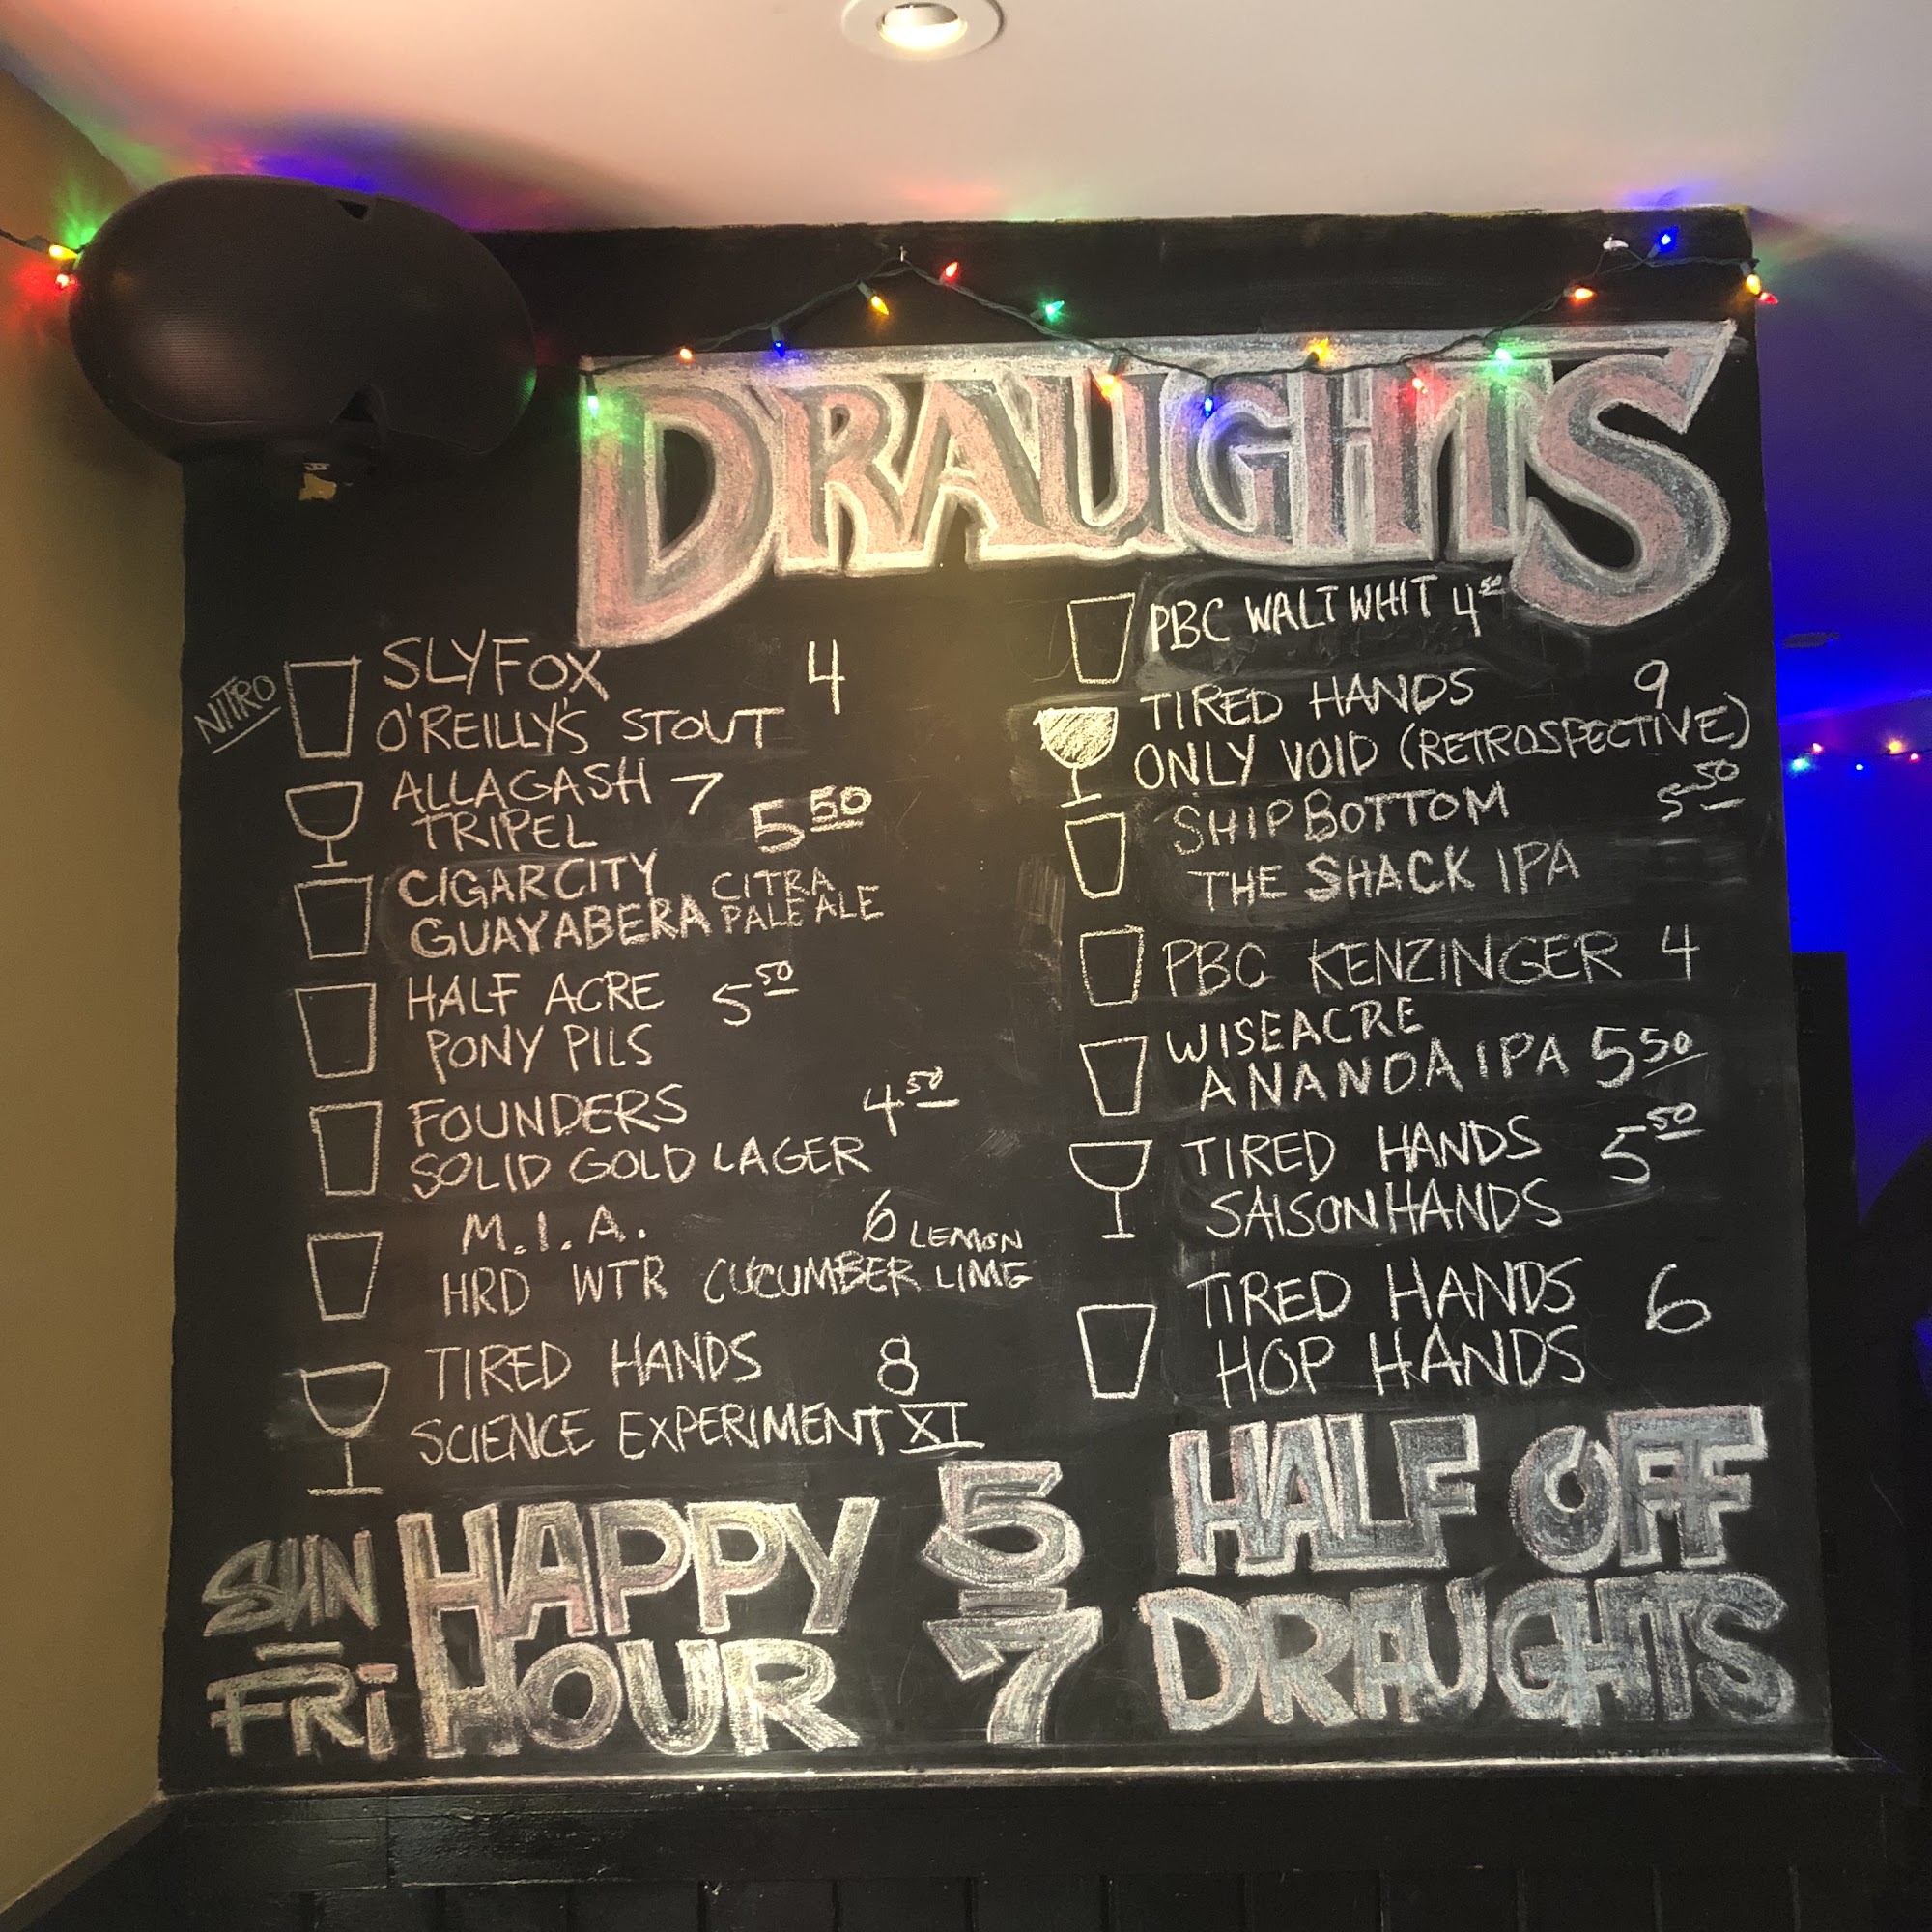 DRAUGHTS
NITRO
SLYFOX 4
O'REILLY'S STOUT
ALLAGASH 7
TRIPEL
5 50
CIGARCITY CITRA
GUAYABERA PALE ALE
HALF ACRE 5 50
PONY PILS
FOUNDERS 4 50
SOLID GOLD LAGER
M.I.A. 6 LEMON
HRD WTR CUCUMBER LIME
TIRED HANDS 8
SCIENCE EXPERIMENT XI
PBC WALT WHIT 4 50
TIRED HANDS 9
ONLY VOID (RETROSPECTIVE)
SHIPBOTTOM 5 50
THE SHACK IPA
PBC KENZINGER 4
WISEACRE
ANANDA IPA 5 50
TIRED HANDS 5 50
SAISONHANDS
TIRED HANDS 6
HOP HANDS
SUN – FRI
HAPPY HOUR
5 – 7
HALF OFF
DRAUGHTS